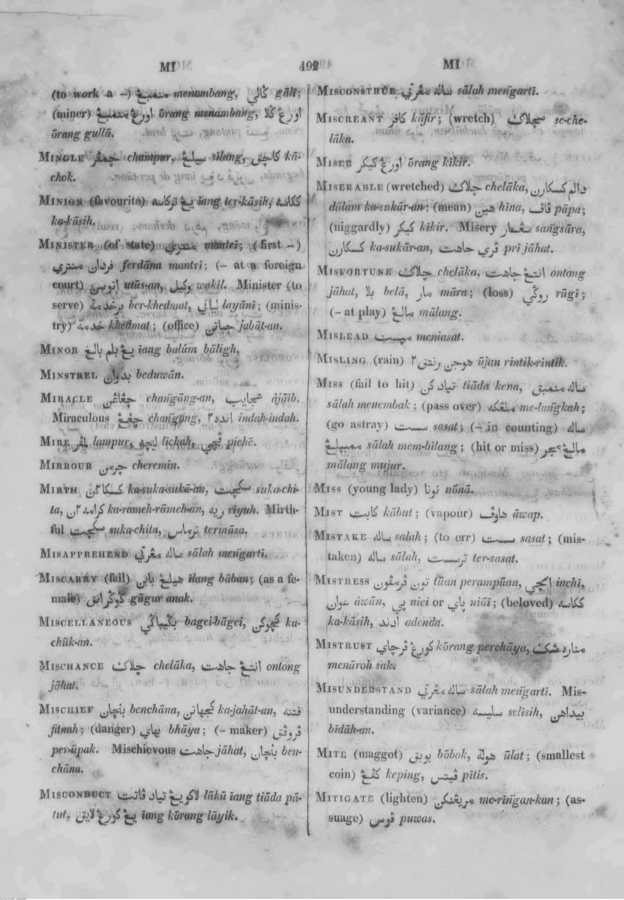 MI
492
MI
(to work a –) menambang, کالي gāli;
(miner) اورڠ منمبڠ ōrang menambang, اورڠ ڬلا
ōrang gullā.
MINGLE چمڤر champur, سيلڠ sīlang, کاچق kā-
chok.
MINION (favourite) يڠ ترکاسه īang ter-kāsih, ککاسه
ka-kāsih.
MINISTER (of state) منتري mantrī; (first –)
فردان منتري ferdāna mantrī; (– at a foreign
court) utūs-an, وکيل wakīl. Minister (to
serve) برخدمة ber-khedmat, لياني layānī; (minis-
try) خدمة khedmat; (office) جباتن jabāt-an.
MINOR يڠ بلم بالغ īang balūm bāligh,
MINSTREL بدوان beduwān.
MIRACLE changūng-an, عجايب ājāib.
Miraculous changūng, indah-indah.
MIRE لمڤر lumpur, ليچه līchah, pichē.
MIRROUR چرمن cheremin.
MIRTH ka-suka-sukā-an, سکچيت suka-chi-
ta, ka-rāmeh-rāmeh-an, ريه rīyuh. Mirth-
ful سکچيت suka-chita, ترماس termāsa.
MISAPPREHEND ساله مڠرتي sālah mengartī.
MISCARRY (fail) هيلڠ بابن īlang bāban; (as a fe-
male) gūgur anak.
MISCELLANEOUS bagei-bāgei, ka-
chūk-an.
MISCHANCE چلاک chelāka, انتڠ جاهت ontong
jāhat.
MISCHIEF بنچان benchāna, کجهاتن ka-jahāt-an, فتنه
fitnah; (danger) بهاي bhāya; (– maker)
per-āpak. Mischievous جاهت jāhat, بنچان ben-
chāna.
MISCONDUCT لاکو يڠ تياد ڤاتت lākū īang tiāda pā-
tut, يڠ کورڠ لايق īang kūrang lāyik.
MISCONSTRUE ساله مڠرتي sālah mengartī.
MISCREANT کافر kāfir; (wretch) سچلاک se-che-
lāka.
MISER اورڠ کيکر ōrang kīkir.
MISERABLE (wretched) چلاک chelāka, دالم کسکارن
dālam ka-sukār-an; (mean) هين hīna, ڤاڤ pāpa;
(niggardly) کيکر kīkir. Misery سڠسار sangsāra,
کسکارن ka-sukār-an, ڤري جاهت pri jāhat.
MISFORTUNE چلاک chelāka, انتڠ جاهت ontong
jāhat, بلا belā, مار māra; (loss) روڬي rūgī;
(– at play) مالڠ mālang.
MISLEAD meniasat.
MISLING (rain) هوجن رنتق٢ ūjan rintik-rintik.
MISS (fail to hit) تياد کن tiāda kena, ساله منمبق
sālah menembak; (pass over) ملڠکه me-langkah;
(go astray) سست sasat; (– in counting) ساله
ممبيلڠ sālah mem-bīlang; (hit or miss) مالڠ مجر
mālang mujur.
MISS (young lady) نونا nūnā.
MIST کابت kābut; (vapour) هاوڤ āwap.
MISTAKE ساله salah; (to err) سست sasat; (mis-
taken) ساله sālah, ترسست ter-sasat.
MISTRESS تون ڤرمڤون tūan perampūan, اينچي inchi,
اوان āwān, پي nici or پاي niāi; (beloved) ککاسه
ka-kāsih, ادند adenda.
MISTRUST کورڠ ڤرچاي kūrang perchāya,
menāroh sak.
MISUNDERSTAND ساله مڠرتي sālah mengartī. Mis-
understanding (variance) سليسه selīsih, بيداهن
bīdāh-an.
MITE (maggot) بوبق būbok, هولة ūlat; (smallest
coin) کڤڠ keping, ڤيتس pitis.
MITIGATE (lighten) مريڠنکن me-rīngan-kan; (as-
suage) ڤوس puwas.